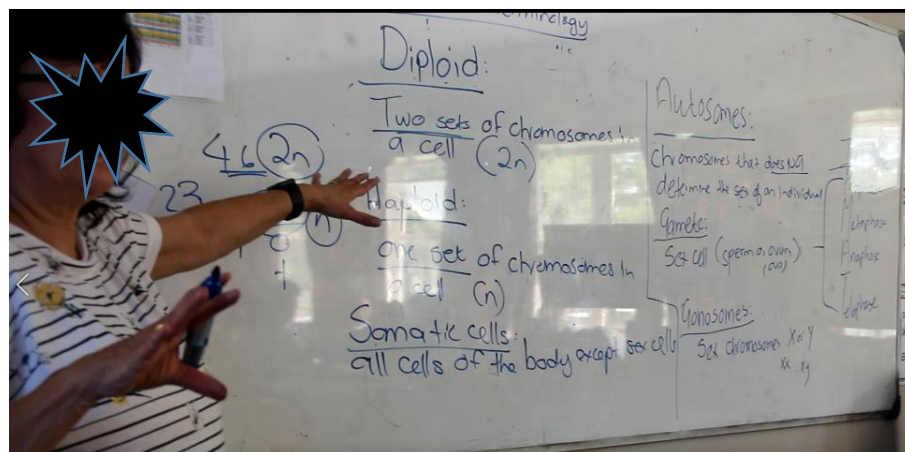 minology
Diploid:
Two sets of chromosomes in
a cell (2n)
Haploid:
one set of chromosomes in
a cell (n)
Somatic cells:
all cells of the body except sex cells
46 2n
23
n
Autosomes:
Chromosomes that does not
determine the sex of an individual
Gamete:
Sex cell (sperm or ovum)
(ova)
Gonosomes:
Sex chromosomes X or Y
xx xy
Metaphase
Anaphase
Telophase